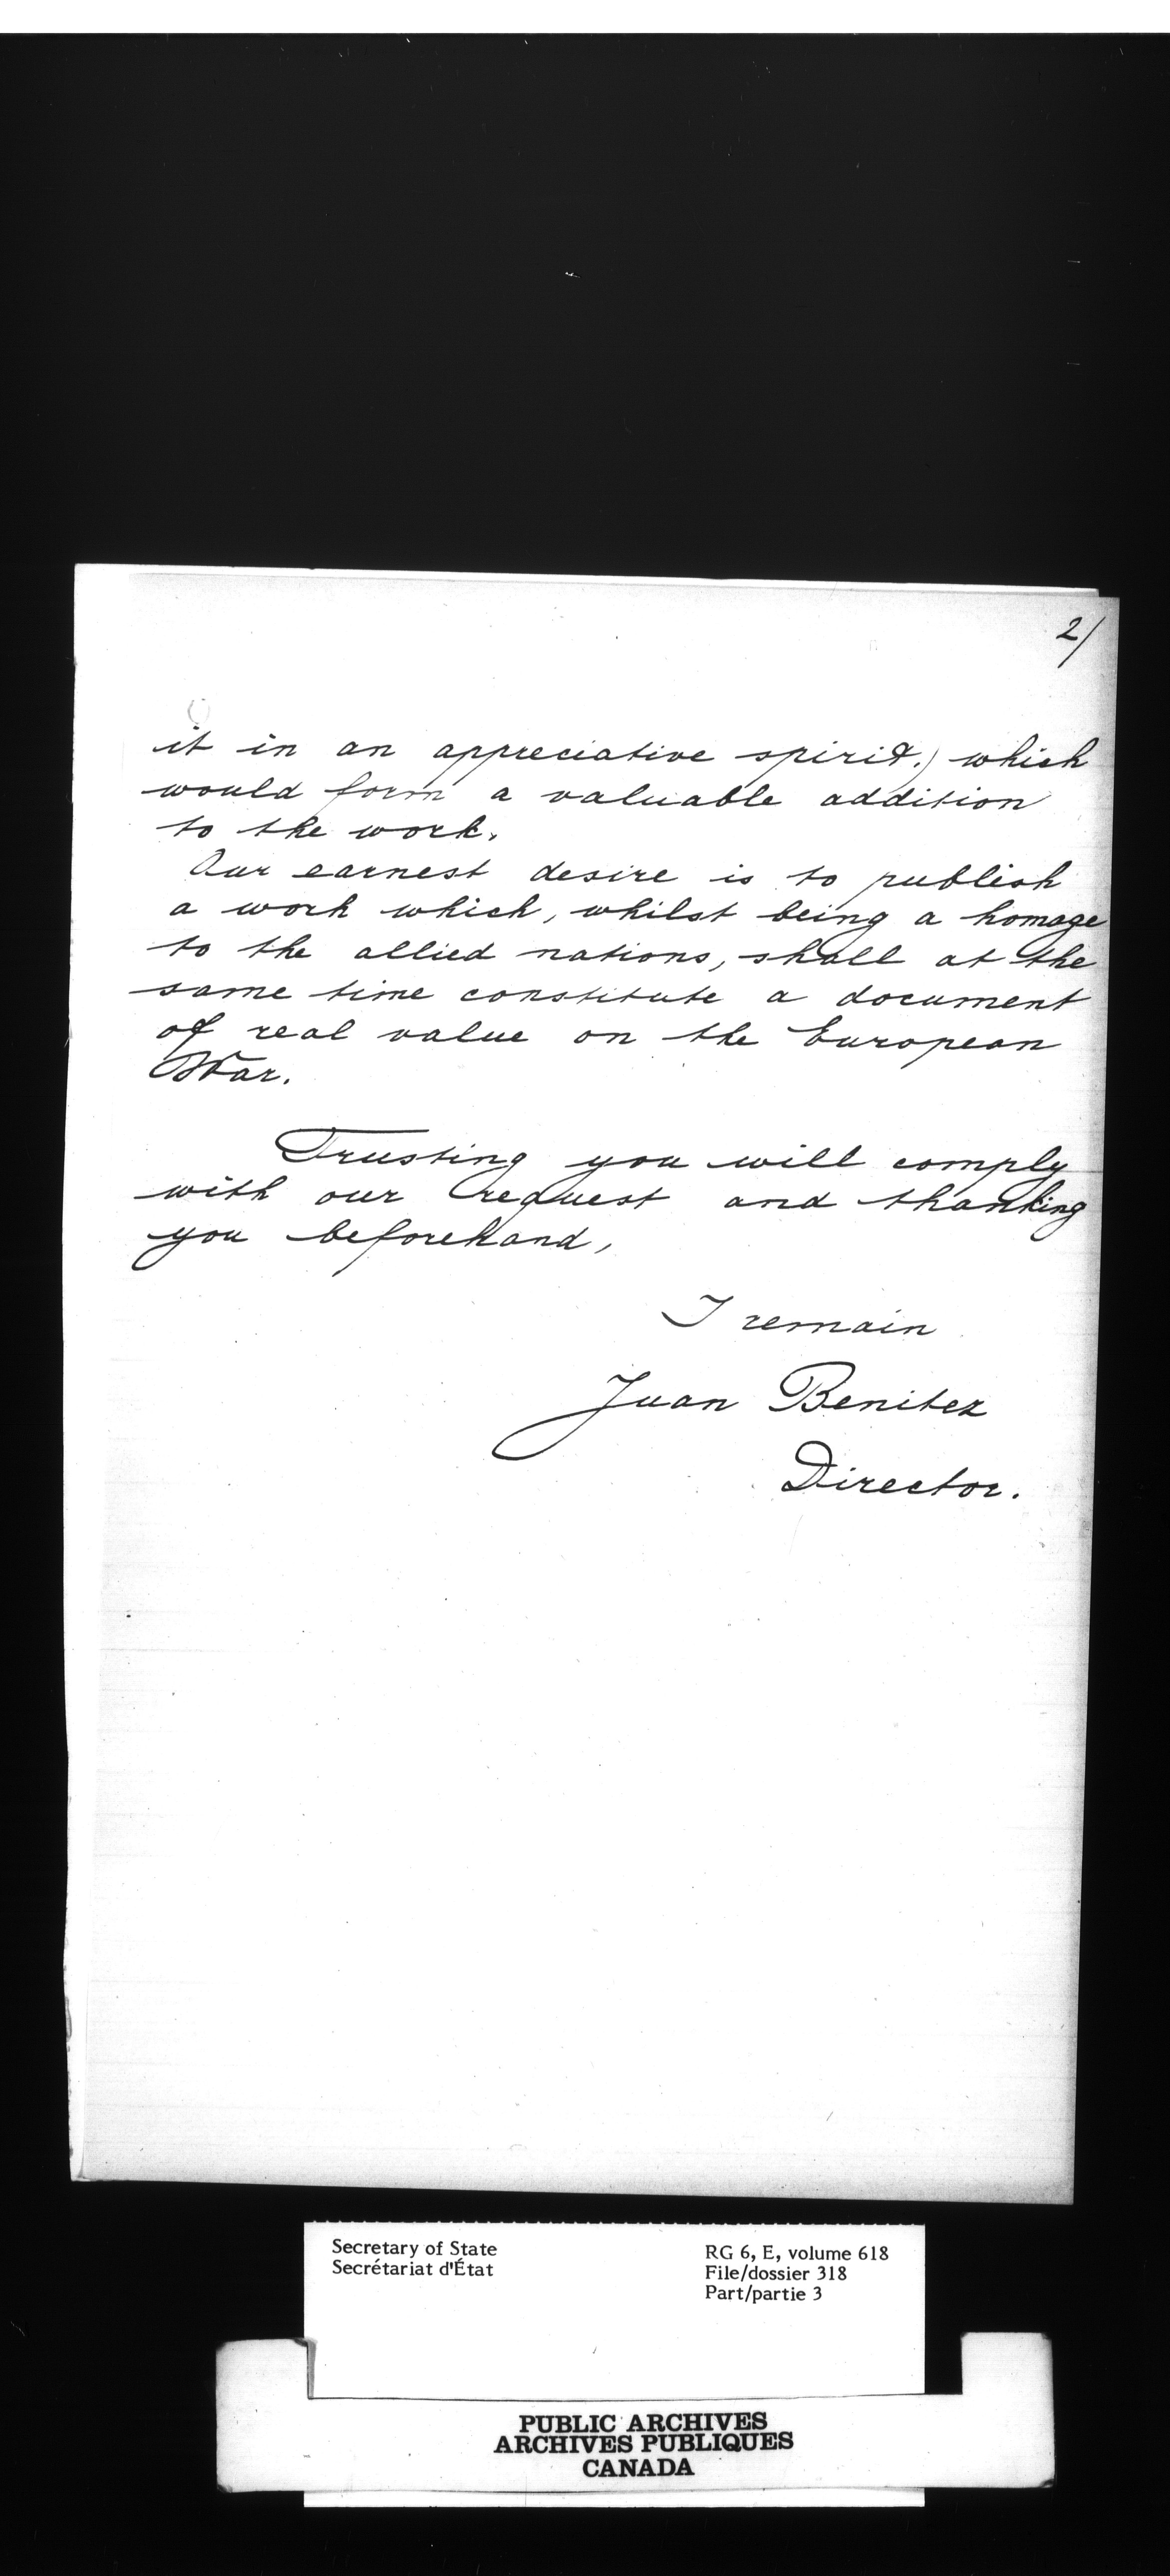 2/
it in an appreciative spirit.) which
would form a valuable addition
to the work.
Our earnest desire is to publish
a work which, whilst being a homage
to the allied nations, shall at the
same time constitute a document
of real value on the European
War.
Trusting you will comply
with our request and thanking
you beforehand,
I remain
Juan Benitez
Director.
Secretary of State
Secrétariat d'État
RG 6, E, volume 618
File/dossier 318
Part/partie 3
PUBLIC ARCHIVES
ARCHIVES PUBLIQUES
CANADA